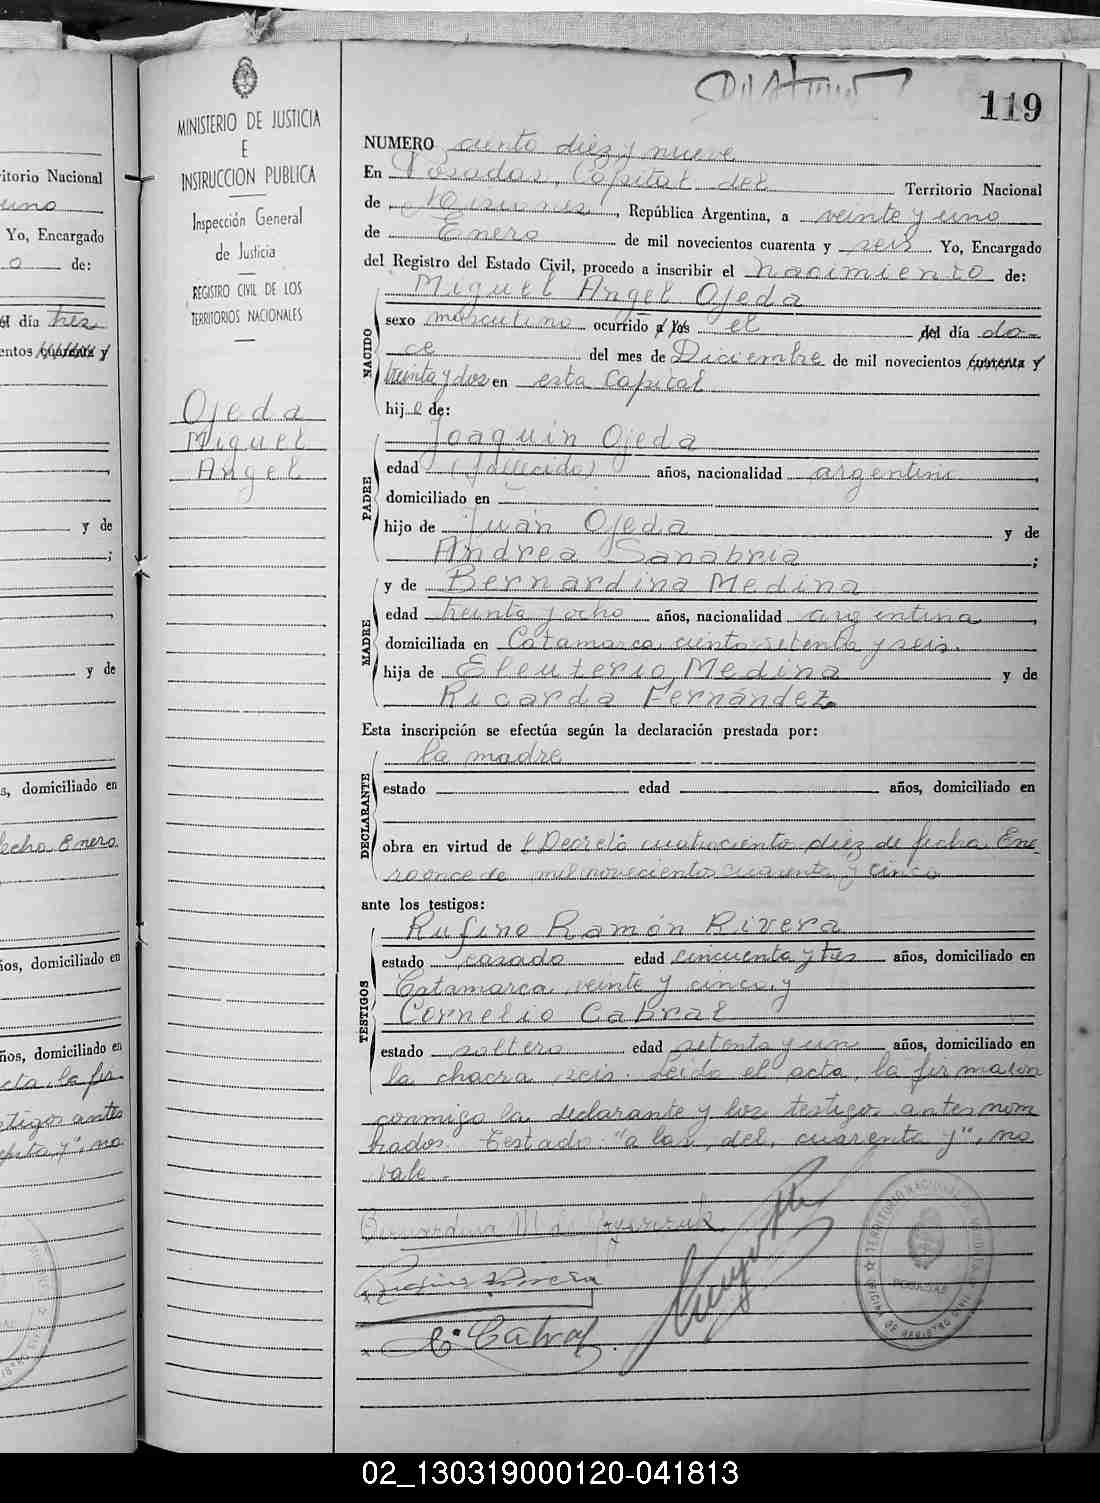 119
MINISTERIO DE JUSTICIA
E
INSTRUCCION PUBLICA
Inspección General
de Justicia
REGISTRO CIVIL DE LOS
TERRITORIOS NACIONALES
Ojeda
Miguel
Angel
NUMERO ciento diez y nueve
En Posadas, Capital del Territorio Nacional
de Misiones, República Argentina, a veinte y uno
de Enero de mil novecientos cuarenta y seis Yo, Encargado
del Registro del Estado Civil, procedo a inscribir el nacimiento de:
Miguel Angel Ojeda
NACIDO
sexo masculino ocurrido a las el del día do-
ce del mes de Diciembre de mil novecientos cuarenta y
treinta y dos en esta Capital
hijo de:
PADRE
Joaquin Ojeda
edad (fallecido) años, nacionalidad argentino
domiciliado en
hijo de Juan Ojeda y de
Andrea Sanabria ;
MADRE
y de Bernardina Medina
edad treinta y ocho años, nacionalidad argentina,
domiciliada en Catamarca ciento setenta y seis.
hija de Eleuterio Medina y de
Ricarda Fernández.
Esta inscripción se efectúa según la declaración prestada por:
DECLARANTE
la madre
estado edad años, domiciliado en
obra en virtud de l Decreto cuatrociento diez de fecha Ene
ro once de mil novecientos cuarenta y cinco
ante los testigos:
TESTIGOS
Rufino Ramón Rivera
estado casado edad cincuenta y tres años, domiciliado en
Catamarca veinte y cinco, y
Cornelio Cabral
estado soltero edad setenta y un años, domiciliado en
la chacra seis. Leido el acta, la firmaron
conmigo la declarante y los testigos antes nom
brados. Testado: "a las, del, cuarenta y", no
vale.
Rufino Rivera
C. Cabral
TERRITORIO NACIONAL DE MISIONES
POSADAS
OFICINA DE REGISTRO CIVIL
itorio Nacional
uno
Yo, Encargado
o de:
el día tres
entos cuarenta y
y de
;
,
y de
s, domiciliado en
fecha Enero
ños, domiciliado en
ños, domiciliado en
acta, la fir
stigos antes
enta y", no
02_130319000120-041813